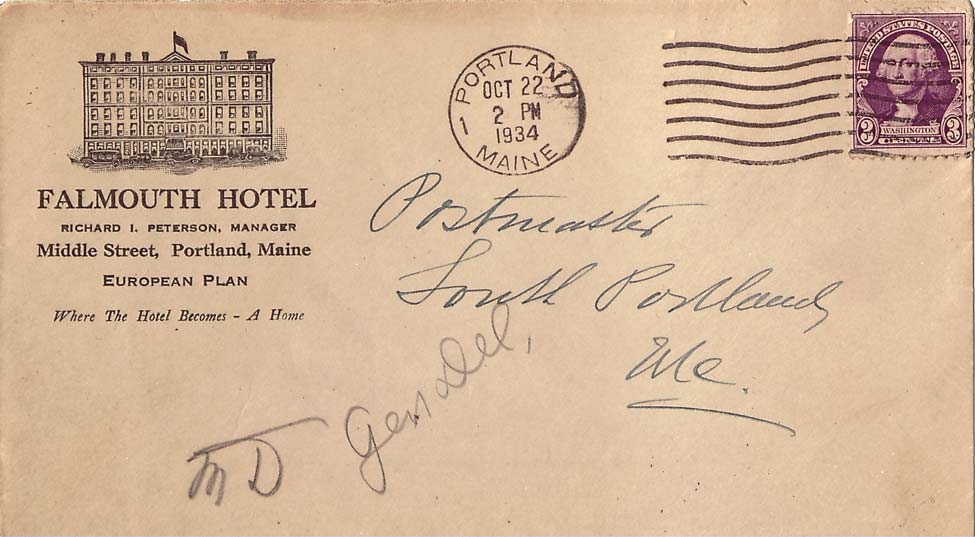 FALMOUTH HOTEL
RICHARD I. PETERSON, MANAGER
Middle Street, Portland, Maine
EUROPEAN PLAN
Where The Hotel Becomes - A Home
PORTLAND
OCT 22
2 PM
1934
1
MAINE
UNITED STATES POSTAGE
3 WASHINGTON 3
Postmaster
South Portland
Me.
M D